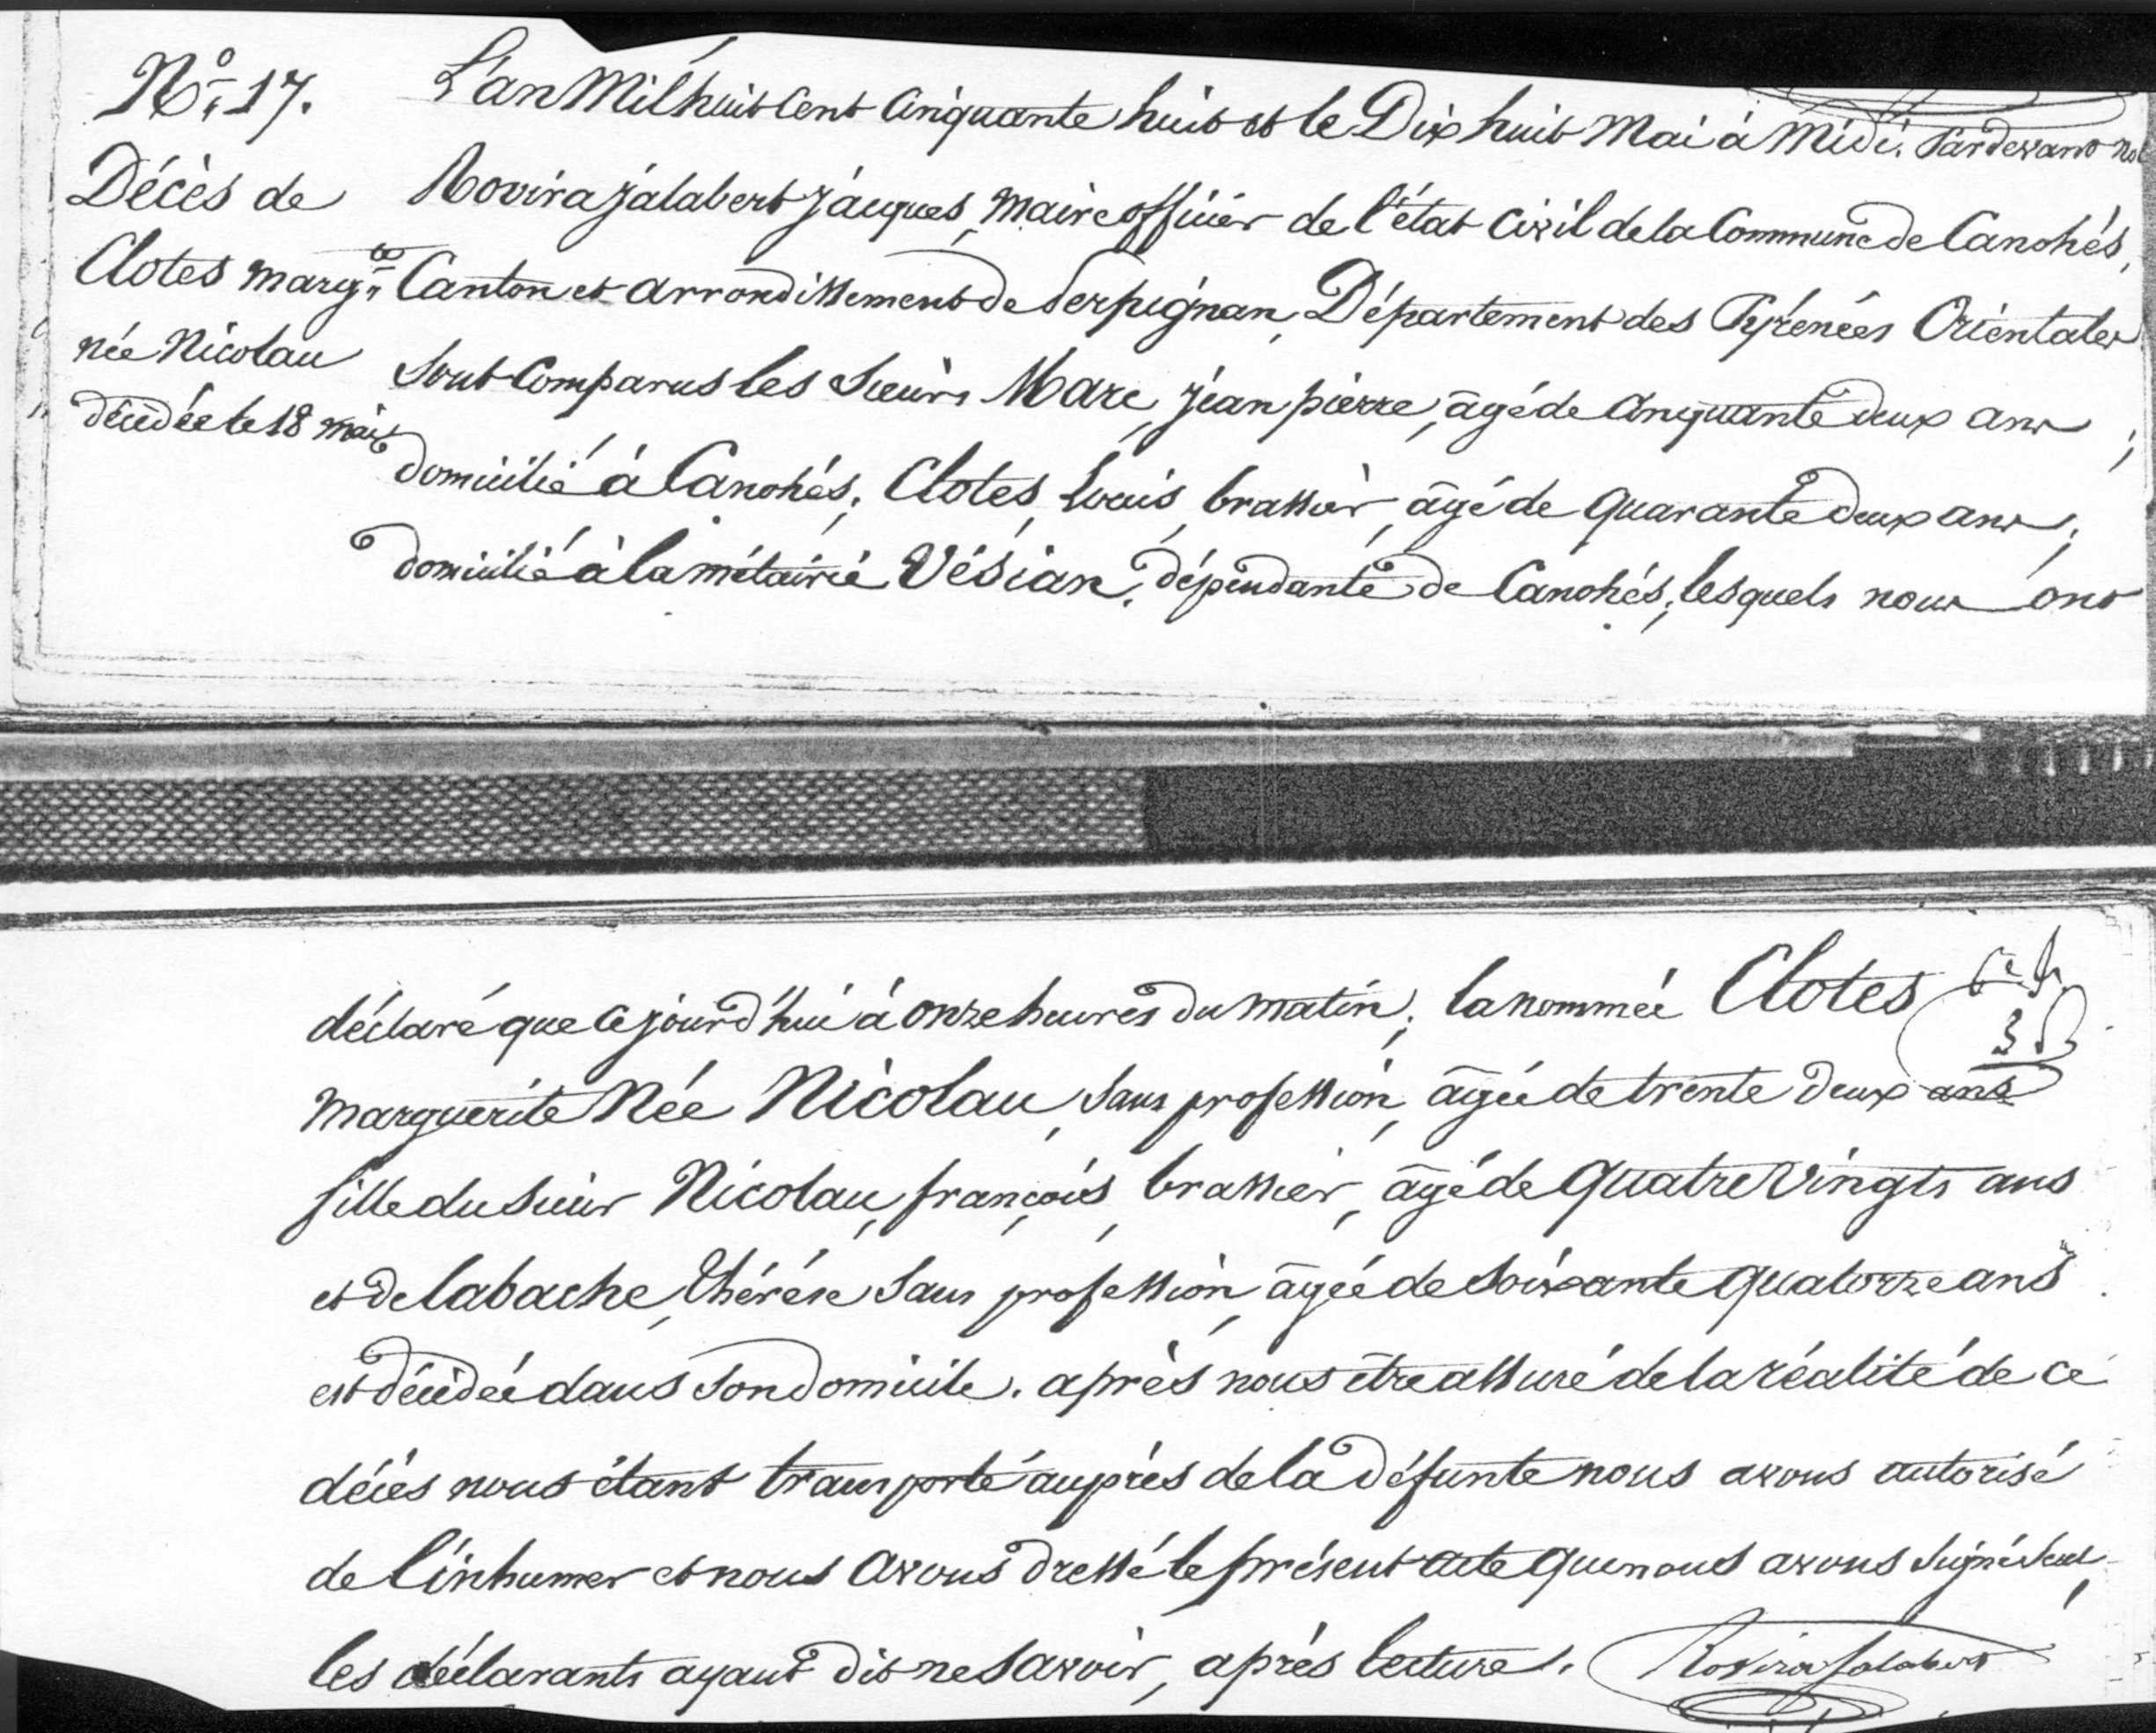 N.º 17. L'an Mil huit Cent Cinquante huit et le Dix huit Mai à Midi. Pardevant no
Décès de Rovira Jalabert Jacques, maire officier de l'état Civil de la Commune de Canohés,
Clotes marg.te Canton et arrondissement de Perpignan, Département des Pyrénées Orientales
née Nicolau Sont Comparus les Sieurs Marc, jean pierre, âgé de Cinquante deux ans,
décédée le 18 mai domicilié à Canohés; Clotes, Louis, brassier, âgé de quarante deux ans;
domicilié à la métairie Vésian, dépendante de Canohés; lesquels nous ont
déclaré que Ce jourd'hui à onze heures du matin; la nommée Clotes
marguerite Née Nicolau, Sans profession, âgée de trente deux ans
fille du Sieur Nicolau, françois, brassier, âgé de quatre Vingts ans
et de labache, Thérése Sans profession, âgée de Soixante quatorze ans
est décédée dans Son domicile. après nous être assuré de la réalité de ce
décès nous étant transporté auprès de la défunte nous avons autorisé
de l'inhumer et nous avons dressé le présent acte que nous avons Signé Seul,
les déclarants ayant dit ne Savoir, après lecture. Rovira Jalabert